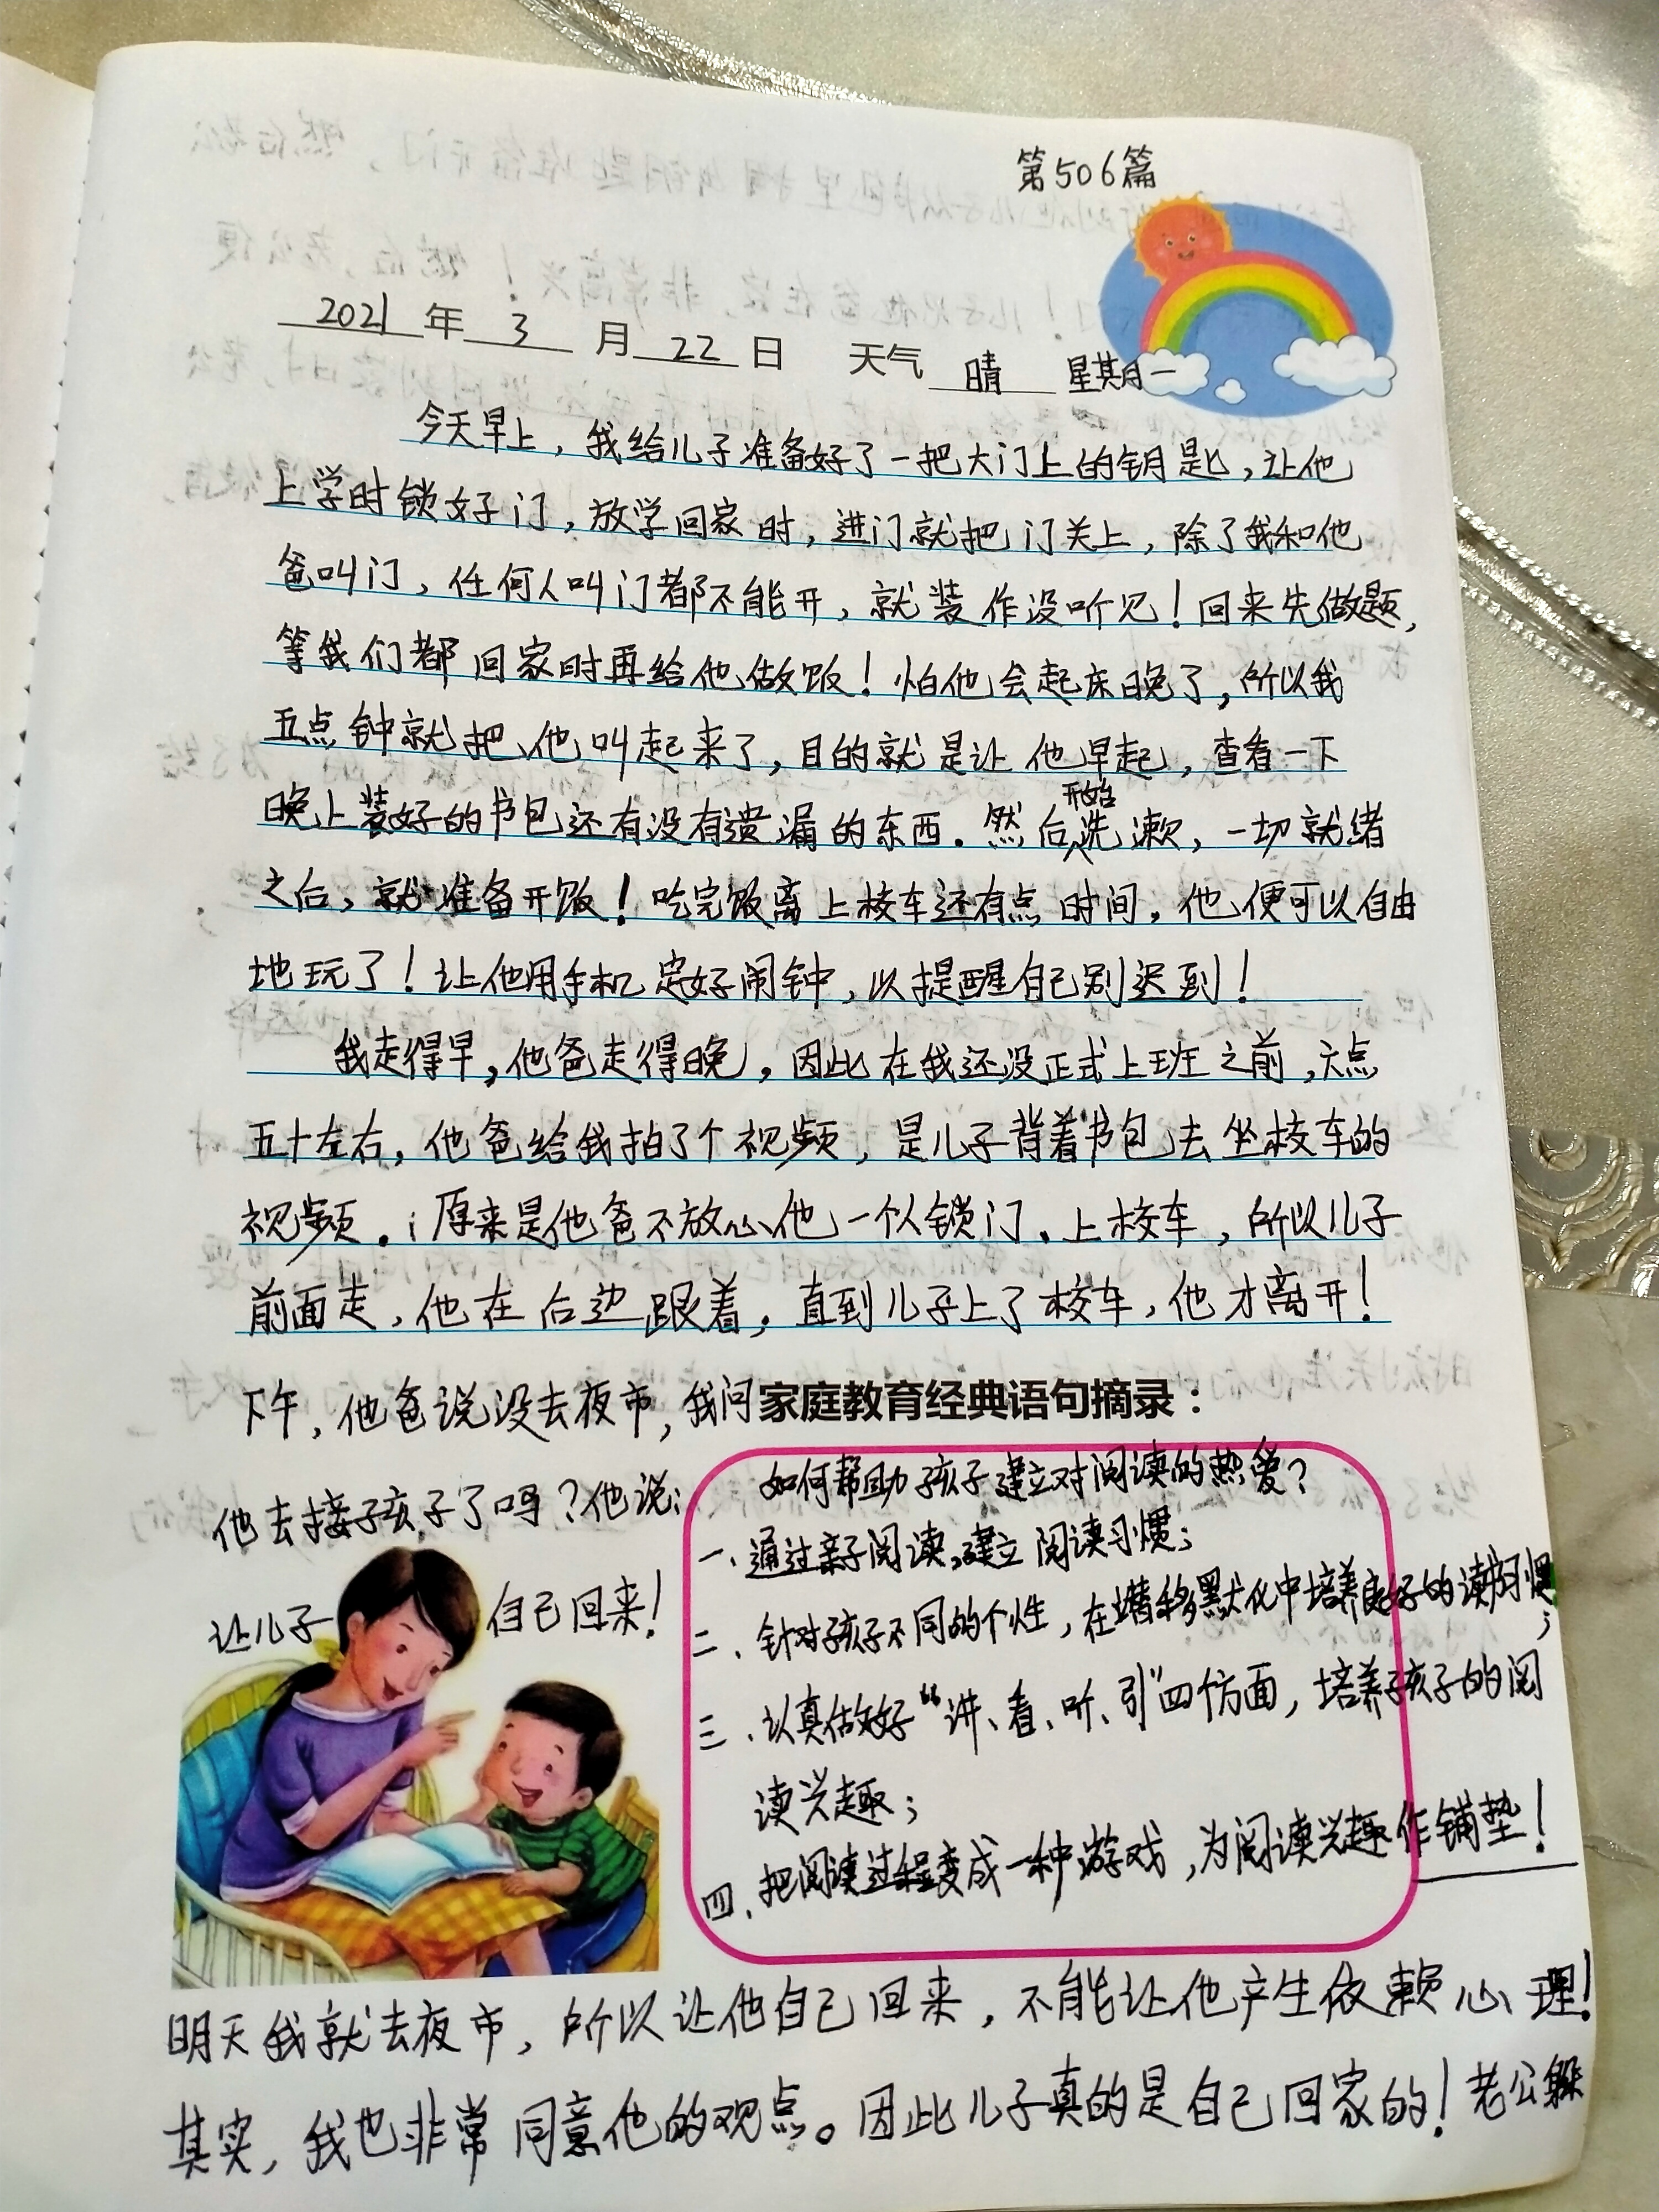 第506篇
2021年3月22日 天气 晴 星期一
今天早上，我给儿子准备好了一把大门上的钥匙，让他
上学时锁好门，放学回家时，进门就把门关上，除了我和他
爸叫门，任何人叫门都不能开，就装作没听见！回来先做题，
等我们都回家时再给他做饭！怕他会起床晚了，所以我
五点钟就把他叫起来了，目的就是让他早起，查看一下
晚上装好的书包还有没有遗漏的东西。然后开始洗漱，一切就绪
之后，就准备开饭！吃完饭离上校车还有点时间，他便可以自由
地玩了！让他用手机定好闹钟，以提醒自己别迟到！
我走得早，他爸走得晚，因此在我还没正式上班之前，六点
五十左右，他爸给我拍了个视频，是儿子背着书包去坐校车的
视频。原来是他爸不放心他一个人锁门、上校车，所以儿子
前面走，他在后边跟着，直到儿子上了校车，他才离开！
下午，他爸说没去夜市，我问
他去接子孩子了吗？他说：
让儿子自己回来！
家庭教育经典语句摘录：
如何帮助孩子建立对阅读的热爱？
一、通过亲子阅读，建立阅读习惯；
二、针对孩子不同的个性，在潜移默化中培养良好的读书习惯；
三、认真做好“讲、看、听、引”四个方面，培养孩子的阅
读兴趣；
四、把阅读过程变成一种游戏，为阅读兴趣作铺垫！
明天我就去夜市，所以让他自己回来，不能让他产生依赖心理！
其实，我也非常同意他的观点。因此儿子真的是自己回家的！老公躲